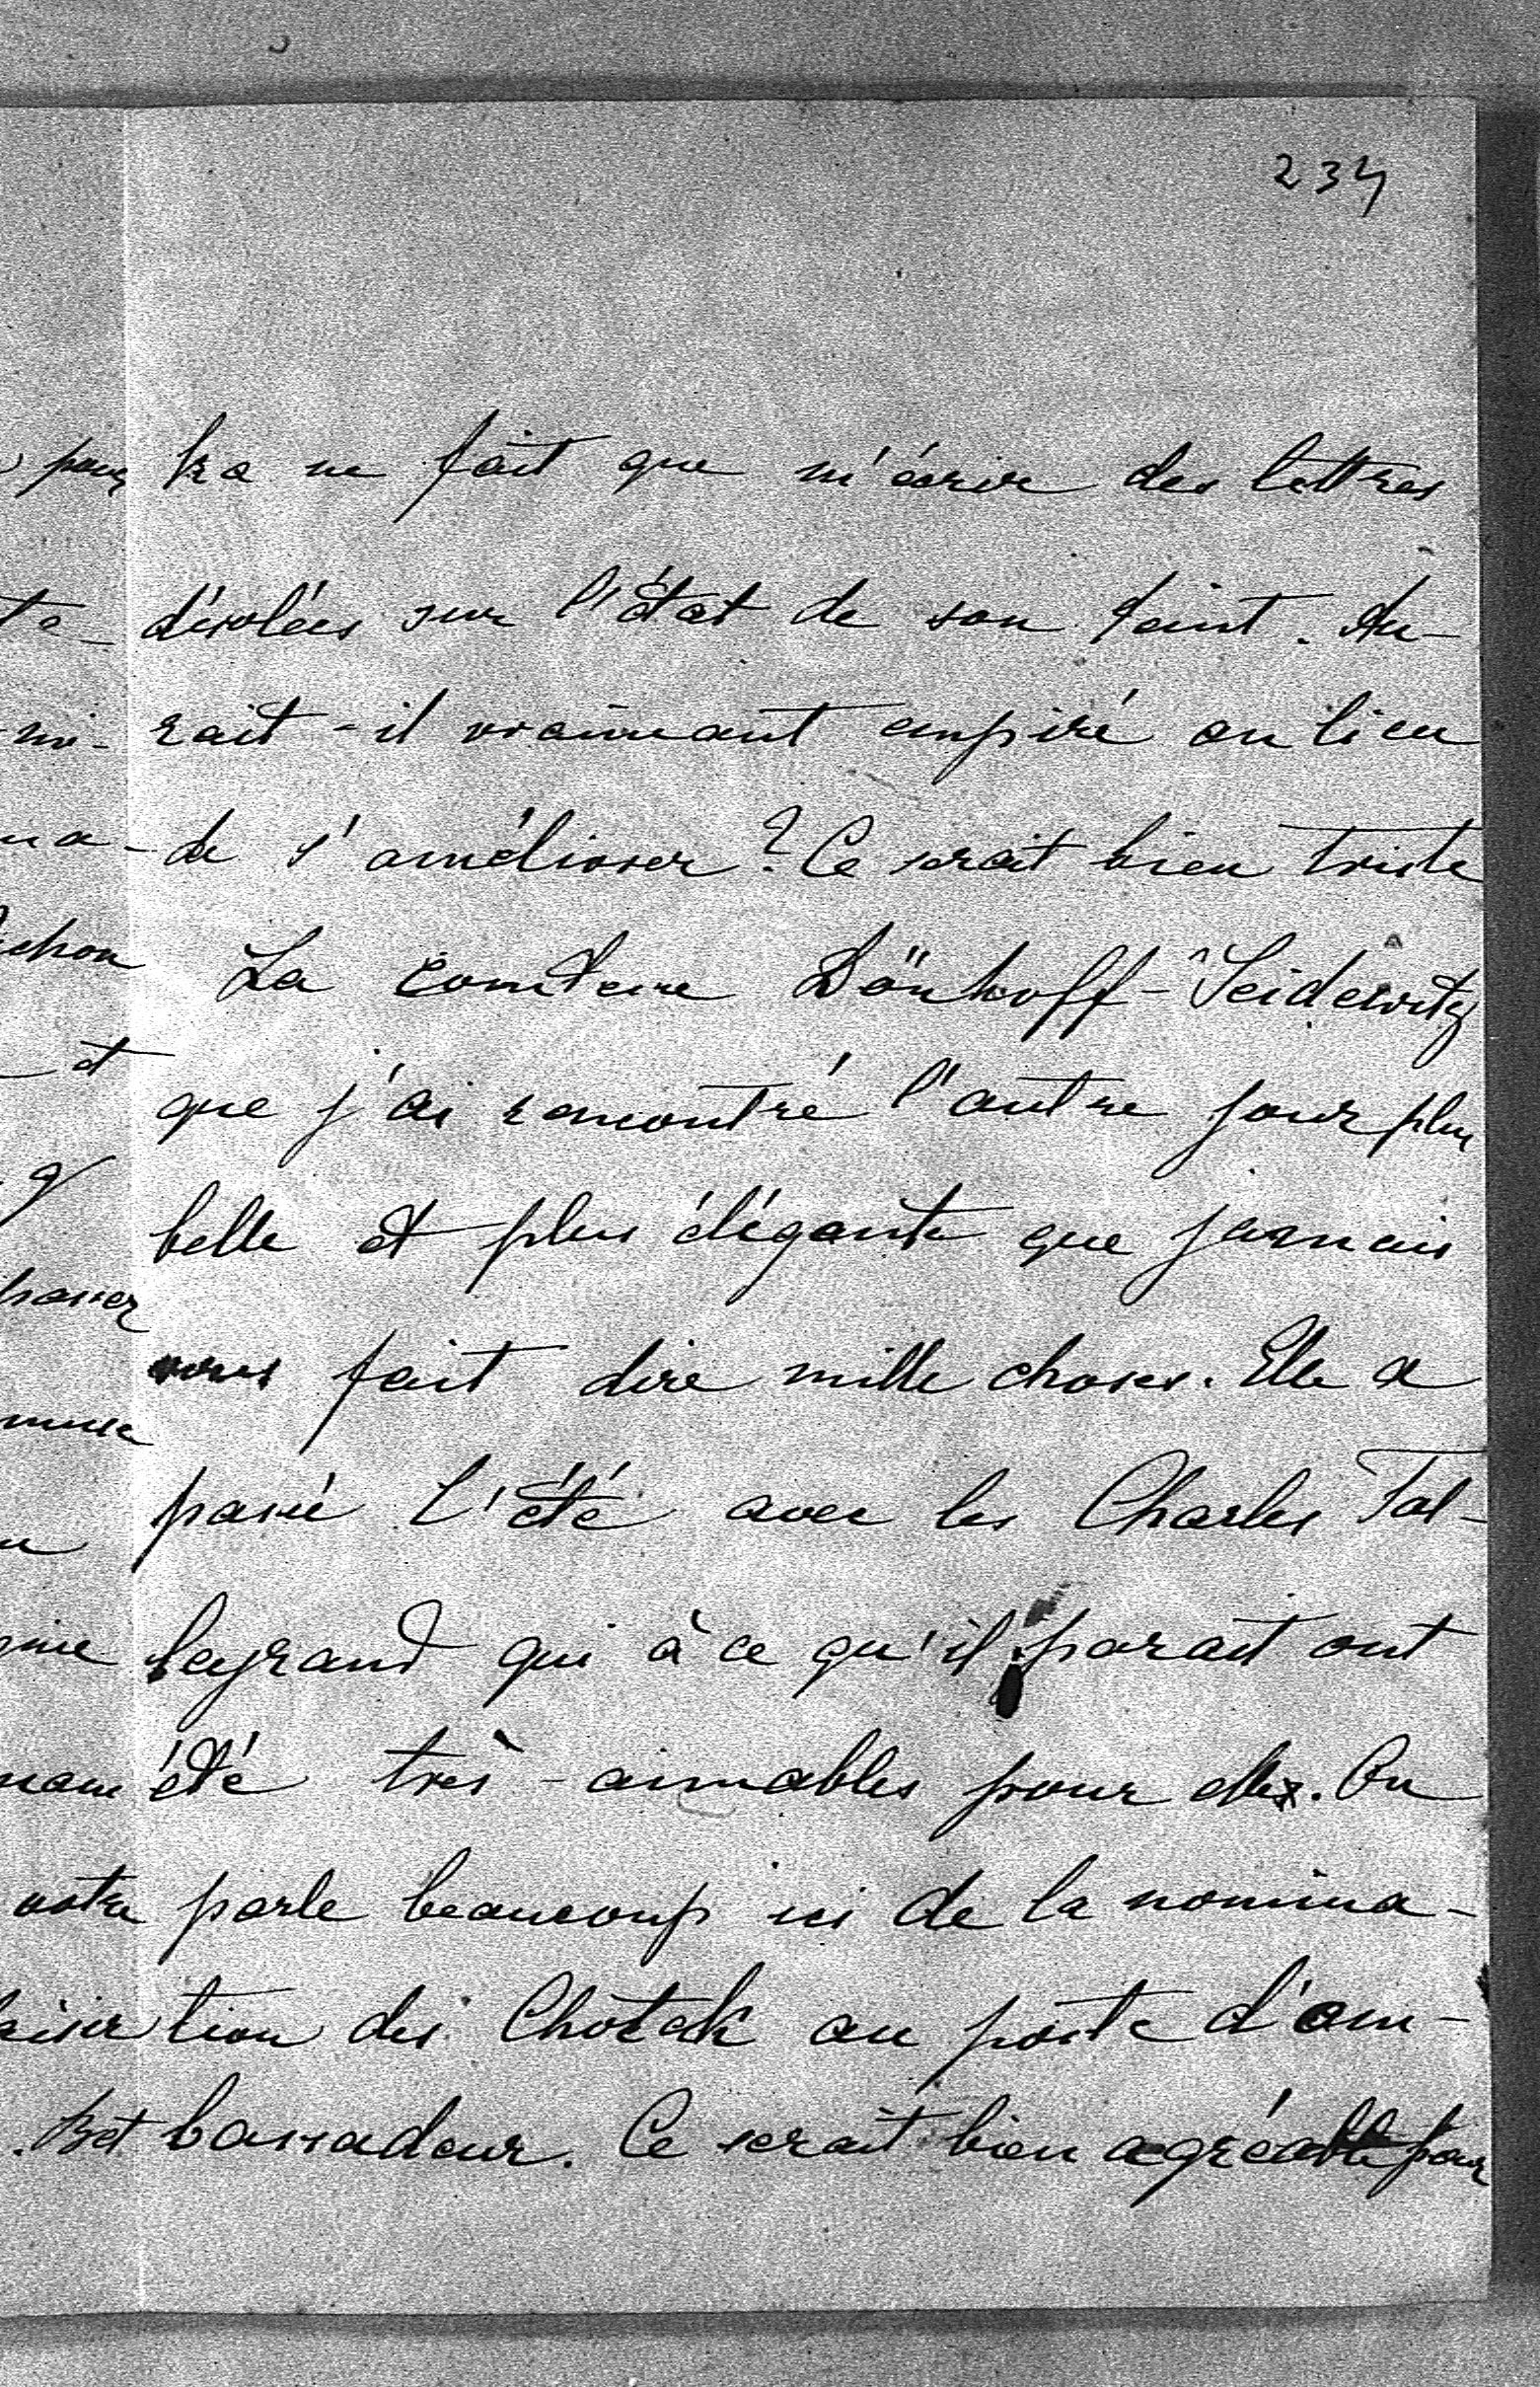 234
ka ne fait que m'écrire des lettres
désolées sur l'état de son teint. Au-
rait-il vraiment empiré au lieu
de s'améliorer? Ce serait bien triste
La comtesse Dönhoff-Seidewitz
que j'ai rencontré l'autre jour plus
belle et plus élégante que jamais
vous fait dire mille choses. Elle a
passé l'été avec les Charles Tal-
leyrand qui à ce qu'il parait ont
été très-aimables pour elle. On
parle beaucoup ici de la nomina-
tion des Chotek au poste d'am-
bassadeur. Ce serait bien agréable pour